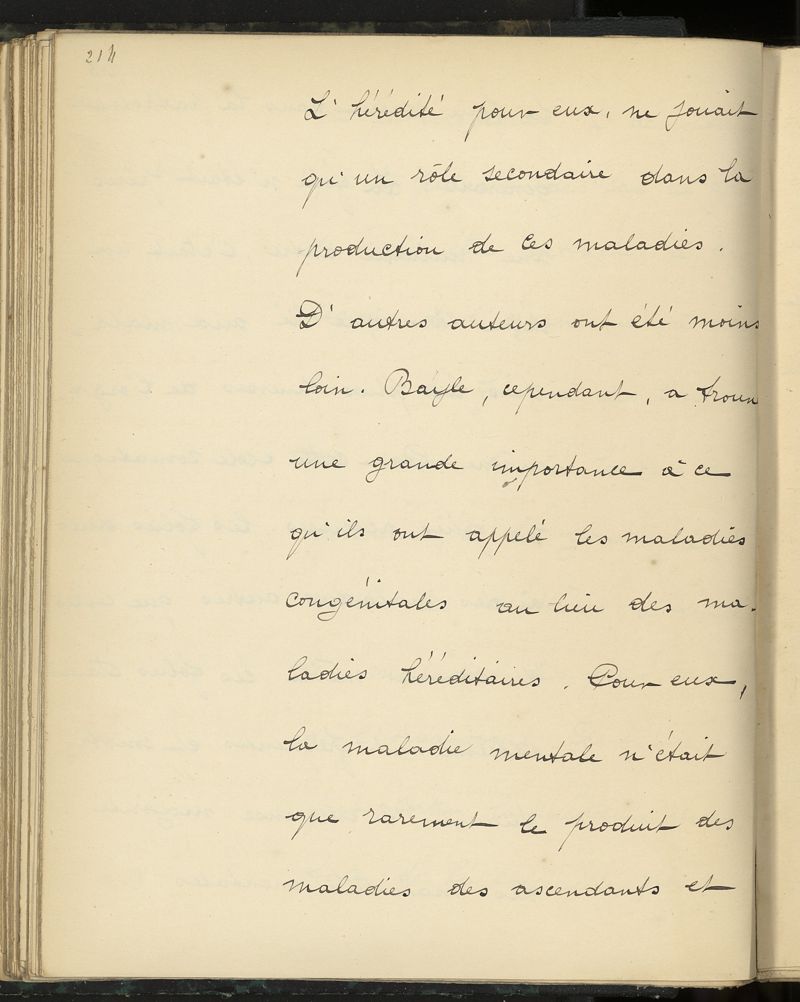 214
L'hérédité pour eux, ne jouait
qu'un rôle secondaire dans la
production de ces maladies.
D'autres auteurs ont été moins
loin. Bayle, cependant, a trouv
une grande importance à ce
qu'ils ont appelé les maladies
congénitales au lieu des ma-
ladies héréditaires. Pour eux,
la maladie mentale n'était
que rarement le produit des
maladies des ascendants et